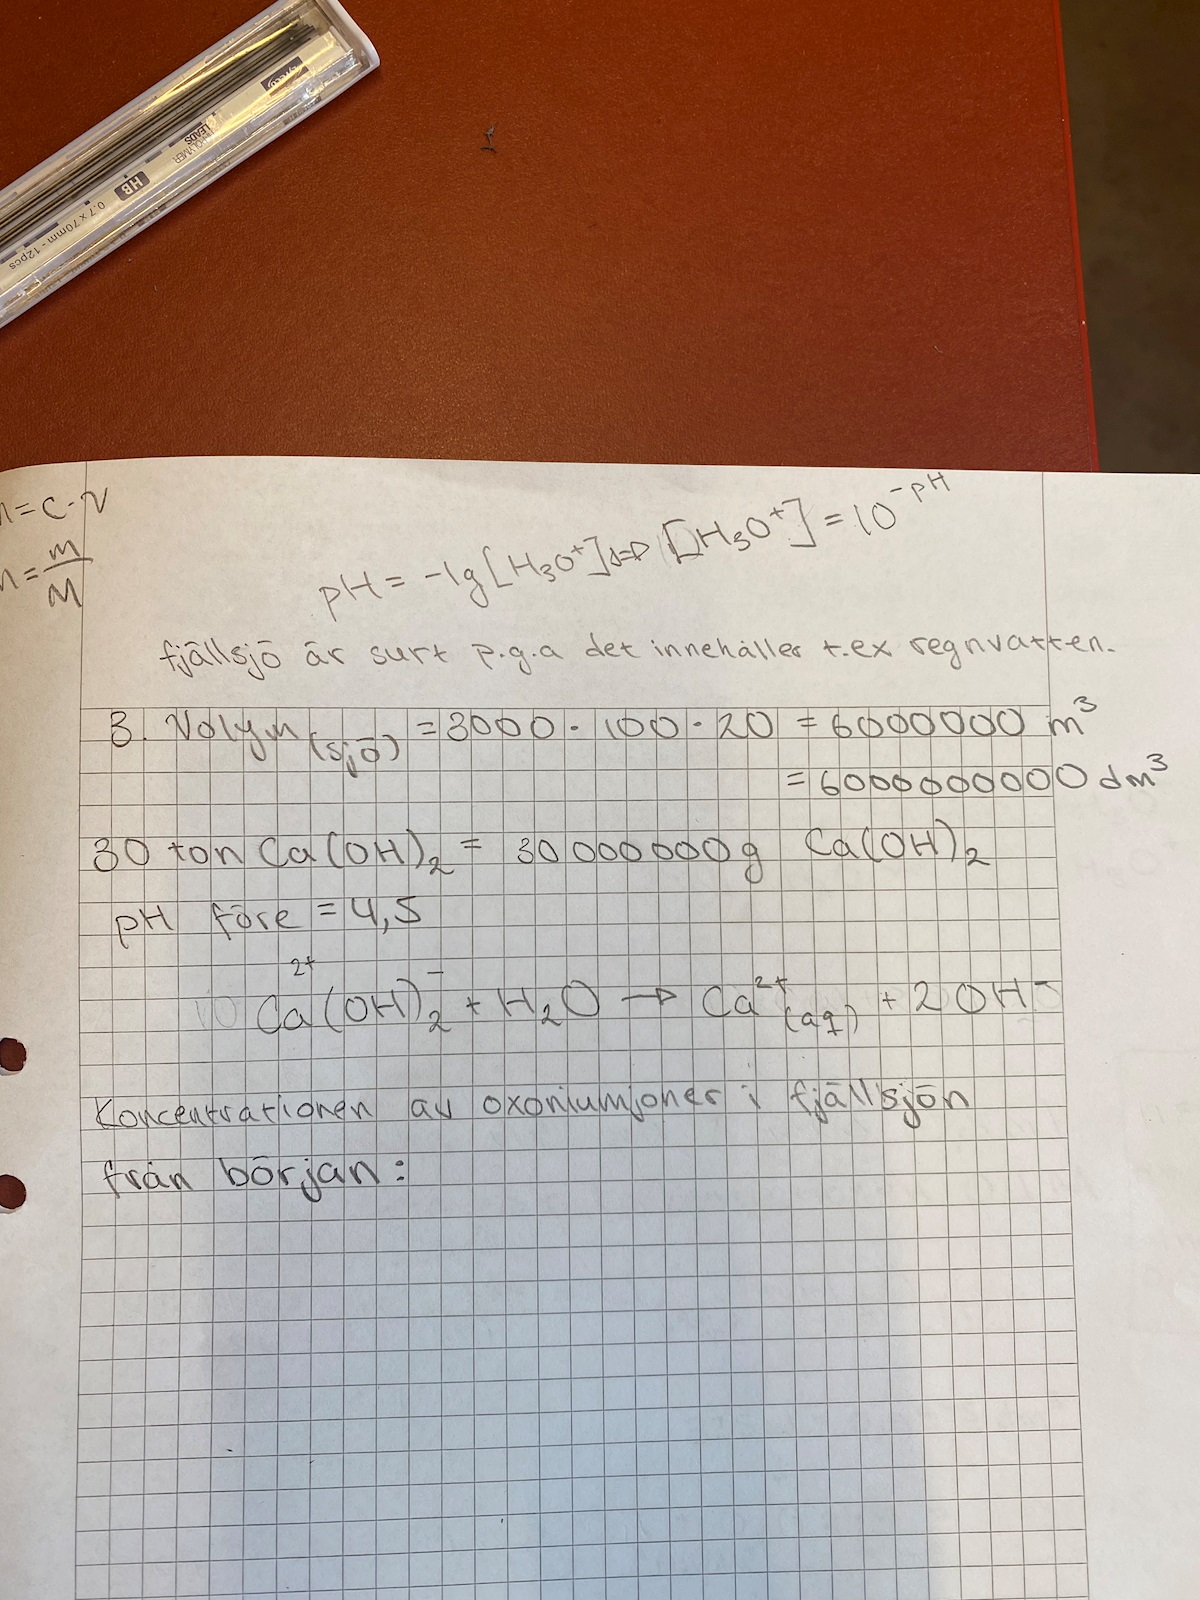 HB
0.7 x 70mm - 12pcs
POLYMER
LEADS
n = c · v
n = m/M
pH = -lg[H₃O⁺] ⇔ [H₃O⁺] = 10^-pH
fjällsjö är surt p.g.a det innehåller t.ex regnvatten.
3. Volym(sjö) = 3000 · 100 · 20 = 6000000 m³
= 6000000000 dm³
30 ton Ca(OH)₂ = 30 000 000g Ca(OH)₂
pH före = 4,5
2+ -
Ca(OH)₂ + H₂O → Ca²⁺(aq) + 2OH⁻
Koncentrationen av oxoniumjoner i fjällsjön
från början: